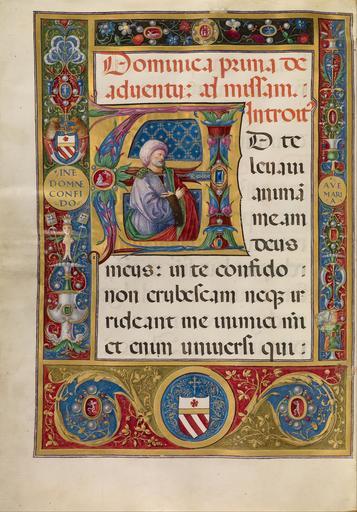 Dominica prima de
aduentu: ad missam.
Introit⁹
D te
leuaui
animā
meam
deus
meus: in te confido
non erubescam neqꝫ ir
rideant me inimici mī
et enim uniuersi qui:
INTE
DOMNE
CONFI
DO
AVE
MARI
A